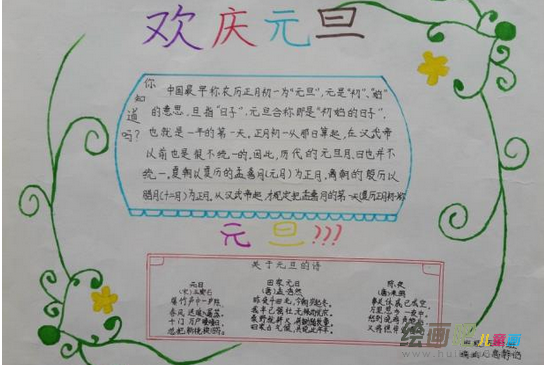 欢庆元旦
你知道吗?
中国最早称农历正月初一为"元旦",元是"初"、"始"
的意思,旦指"日子",元旦合称即是"初始的日子",
也就是一年的第一天,正月初一从那日算起,在汉武帝
以前也是很不统一的,因此,历代的元旦月、日也并不
统一,夏朝以夏历的孟喜月(元月)为正月,商朝的殷历以
腊月(十二月)为正月,从汉武帝起,才规定把孟喜月的第一天(夏历正月初一)
元旦!!!
关于元旦的诗
元日
(宋)王安石
爆竹声中一岁除,
春风送暖入屠苏。
千门万户曈曈日,
总把新桃换旧符。
田家元日
(唐)孟浩然
昨夜斗回北,今朝岁起东。
我年已强仕,无禄尚忧农。
桑野就耕父,荷锄随牧童。
田家占气候,共说此年丰。
除夜
(唐)来鹄
事关休戚已成空,
万里相思一夜中。
绘画
儿童画